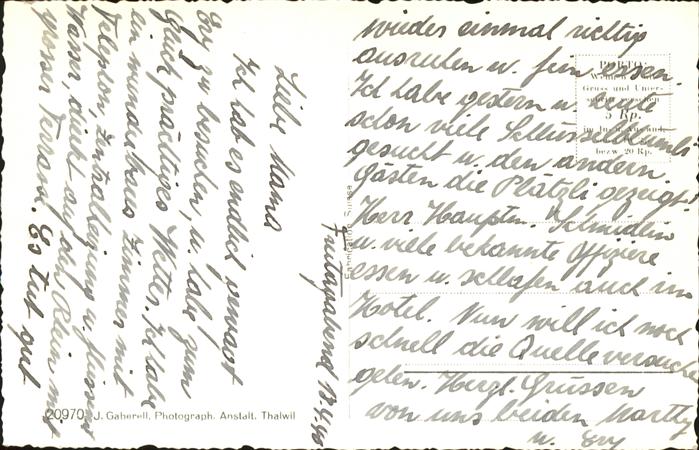 Freitagabend 13.4.45
Liebe Mama
Ich hab es endlich gewagt
Ery zu besuchen, u. habe zum
Glück prächtiges Wetter. Ich habe
ein wunderbares Zimmer mit
Telephon, Zentralheizung u. fliessend
Wasser, direkt auf den Rhein mit
grosser Terrasse. Es tut gut
wieder einmal richtig
ausruhen u. fein essen.
Ich habe gestern u. heute
schon viele Schlüsselblümli
gesucht u. den andern
Gästen die Plätzli gezeigt.
Herr Hauptm. Schmidlin
u. viele bekannte Offiziere
essen u. schlafen auch im
Hotel. Nun will ich noch
schnell die Quelle versuchen
gehen. Herzl. Grüssen
von uns beiden Marthy
u. Ery
PORTO
Gruss und Unter-
5 Rp.
bezw. 20 Rp.
Suisse
20970 J. Gaberell, Photograph. Anstalt, Thalwil